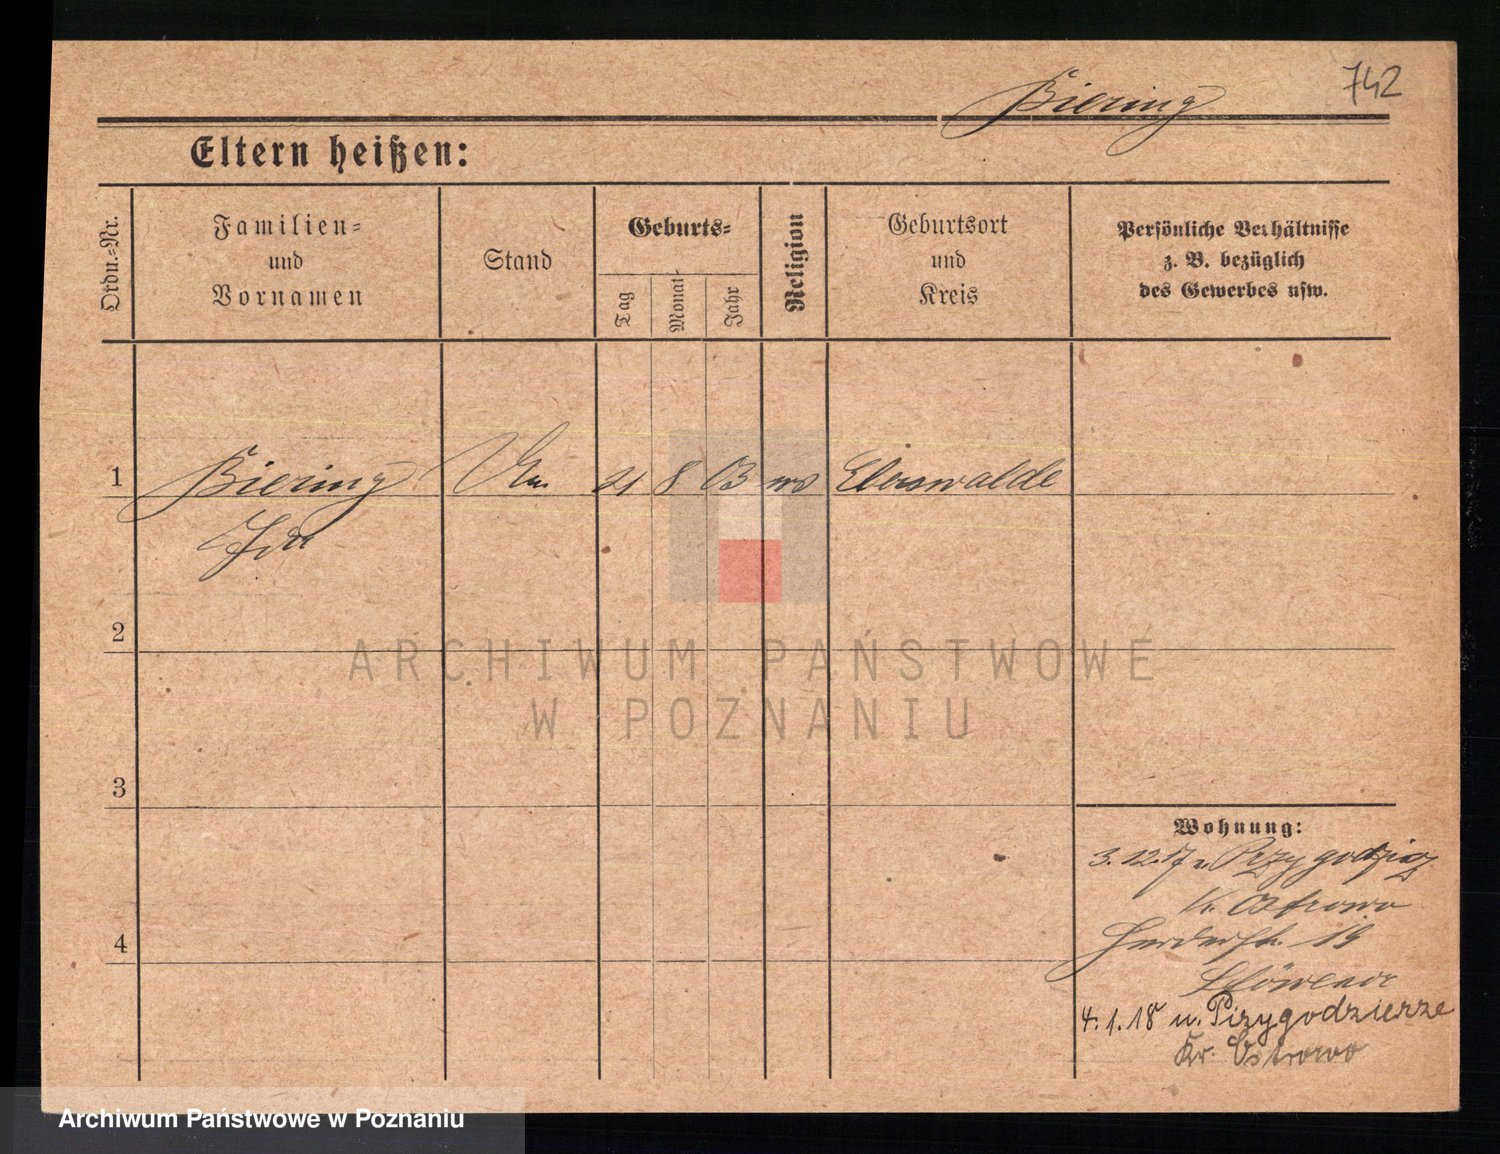 742
Biering
Eltern heißen:
Ordn.-Nr.
Familien-
und
Vornamen
Stand
Geburts-
Tag
Monat
Jahr
Religion
Geburtsort
und
Kreis
Persönliche Verhältnisse
z. B. bezüglich
des Gewerbes usw.
1
Biering
21 8 03
Eberswalde
Ida
2
ARCHIWUM PAŃSTWOWE
W POZNANIU
3
Wohnung:
3. 12. 17 v. Przygodzice
Kr. Ostrowo
Herderstr. 19
4
4. 1. 18 n. Przygodzierze
Kr. Ostrowo
Archiwum Państwowe w Poznaniu